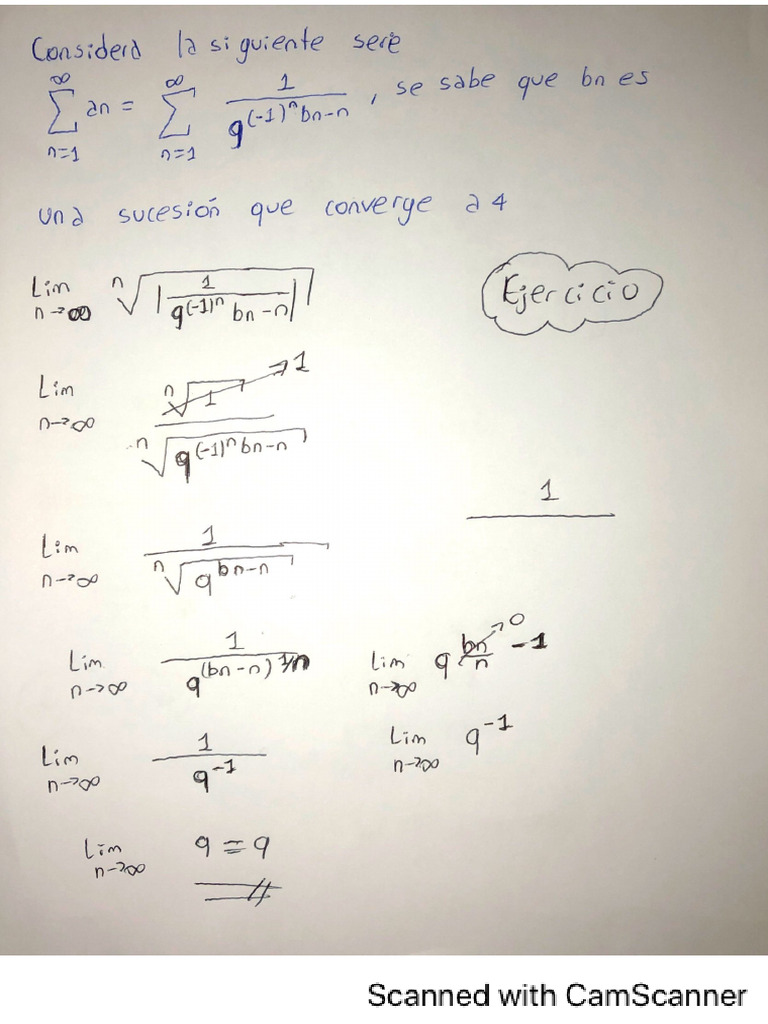 Considera la siguiente serie
∞ ∑ n=1 an = ∞ ∑ n=1 1 / 9^((-1)^n bn-n) , se sabe que bn es
una sucesión que converge a 4
Ejercicio
Lim n→∞ ⁿ√|1 / 9^((-1)^n bn-n)|
Lim n→∞ ⁿ√1 → 1 / ⁿ√9^((-1)^n bn-n)
1
Lim n→∞ 1 / ⁿ√9^(bn-n)
Lim n→∞ 1 / 9^((bn-n) 1/n) Lim n→∞ 9^(bn/n → 0 -1)
Lim n→∞ 1 / 9^(-1) Lim n→∞ 9^(-1)
Lim n→∞ 9 = 9
Scanned with CamScanner